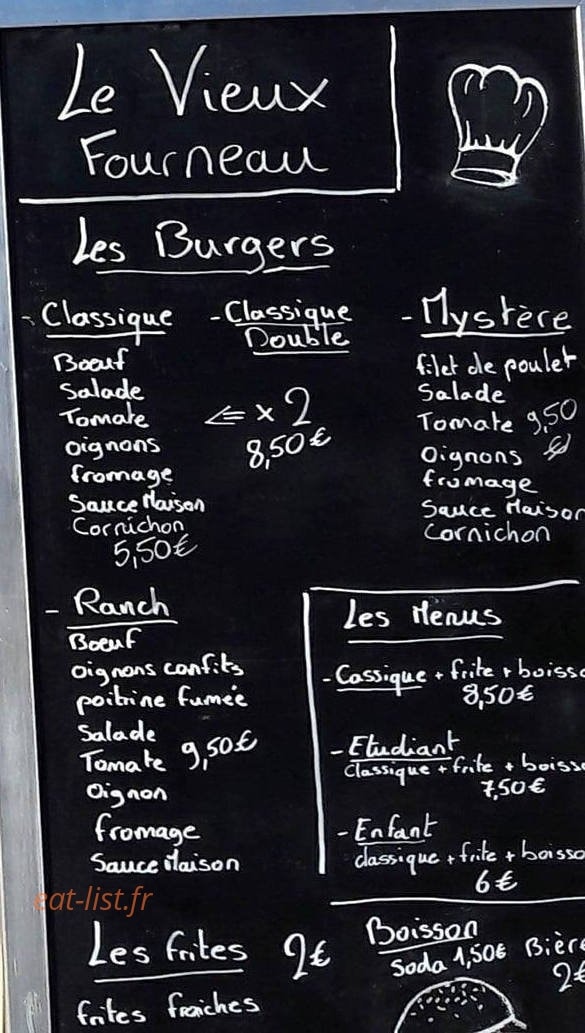 Le Vieux
Fourneau
Les Burgers
- Classique
Boeuf
Salade
Tomate
oignons
fromage
Sauce Maison
Cornichon
5,50€
- Classique
Double
⇐ x 2
8,50€
- Mystère
filet de poulet
Salade
Tomate 9,50
Oignons €
fromage
Sauce Maison
Cornichon
- Ranch
Boeuf
oignons confits
poitrine fumée
Salade
Tomate 9,50€
Oignon
fromage
Sauce Maison
Les Menus
- Cassique + frite + boisso
8,50€
- Etudiant
Classique + frite + boisso
7,50€
- Enfant
classique + frite + boisso
6€
eat-list.fr
Les frites 2€
frites fraiches
Boisson
Soda 1,50€ Bière
2€